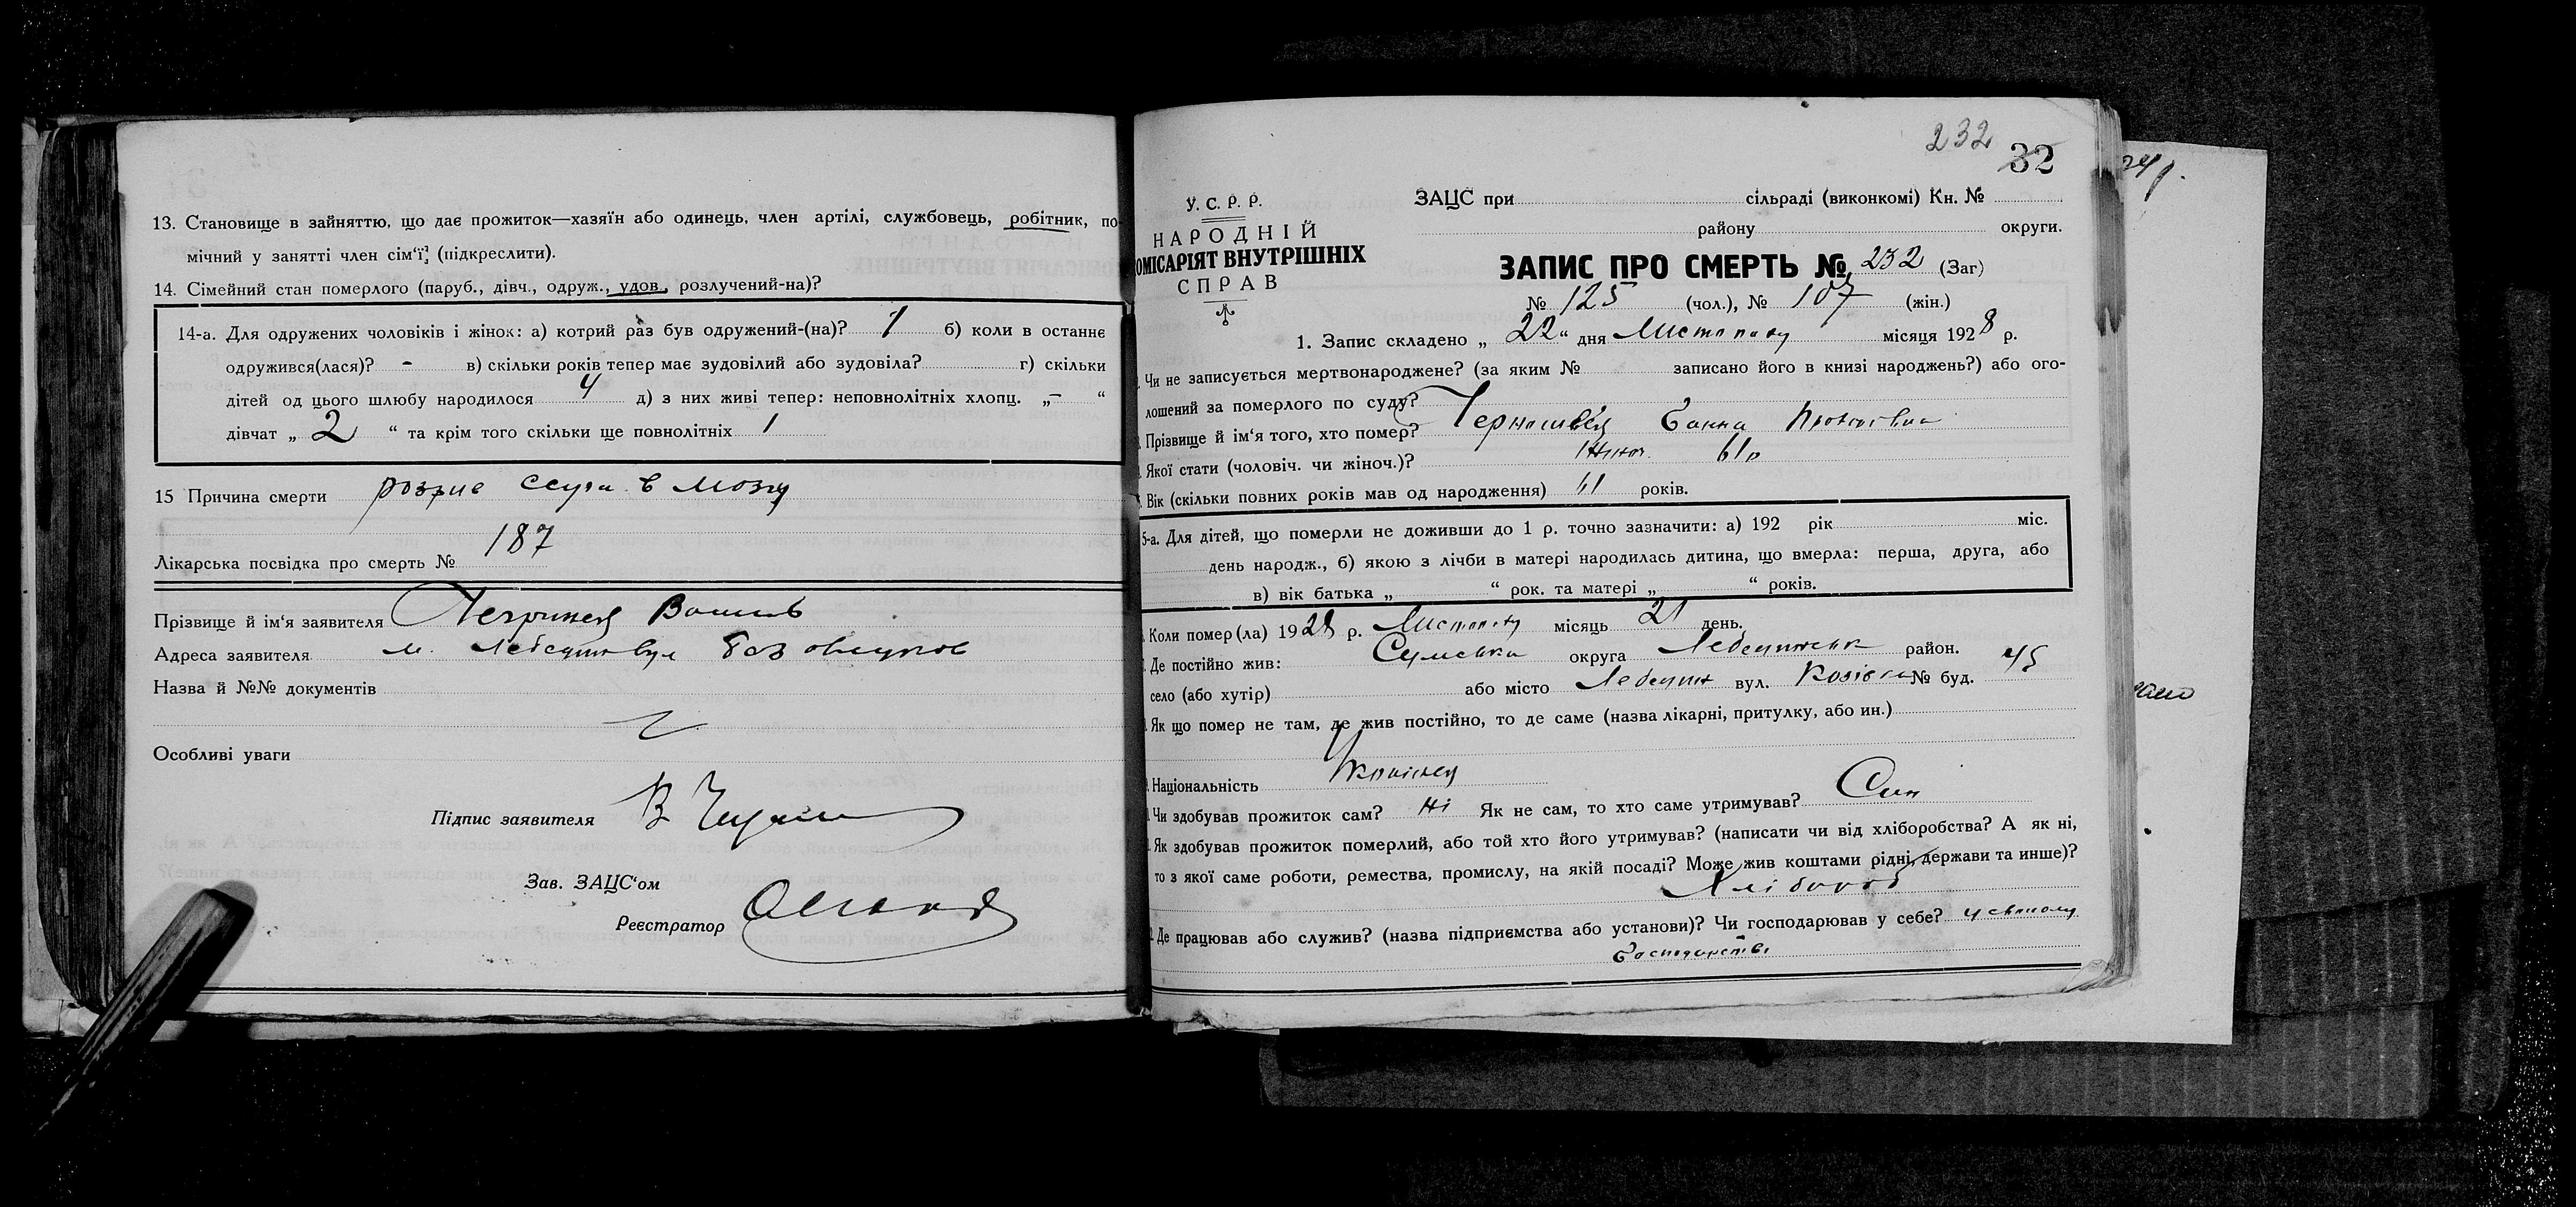 13. Становище в зайняттю, що дає прожиток—хазяїн або одинець, член артілі, службовець, робітник, по-
мічний у занятті член сім‘ї; (підкреслити).
14. Сімейний стан померлого (паруб., дівч., одруж., удов., розлучений-на)?
14-а. Для одружених чоловіків і жінок: а) котрий раз був одружений-(на)? 1 б) коли в останнє
одружився(лася)? - в) скільки років тепер має зудовілий або зудовіла? г) скільки
дітей од цього шлюбу народилося 4 д) з них живі тепер: неповнолітніх хлопц. „–“
дівчат „2“ та крім того скільки ще повнолітніх 1
15 Причина смерти розрив в мозгу
Лікарська посвідка про смерть № 187
Прізвище й ім‘я заявителя
Адреса заявителя м.
Назва й №№ документів
Особливі уваги
Підпис заявителя
Зав. ЗАЦС‘ом
Реєстратор
232
32
У. С. Р. Р.
НАРОДНІЙ
ОМІСАРІЯТ ВНУТРІШНІХ
СПРАВ
ЗАЦС при сільраді (виконкомі) Кн. №
району округи.
ЗАПИС ПРО СМЕРТЬ № 232 (Заг)
№ 125 (чол.), № 107 (жін.)
1. Запис складено „22“ дня Листопаду місяця 1928 р.
Чи не записується мертвонароджене? (за яким № записано його в книзі народжень?) або ого-
лошений за померлого по суду?
Прізвище й ім‘я того, хто помер? Ганна
Якої стати (чоловіч. чи жіноч.)? Жіноч. 61 р
Вік (скільки повних років мав од народження) 61 років.
5-а. Для дітей, що померли не доживши до 1 р. точно зазначити: а) 192 рік міс.
день народж., б) якою з лічби в матері народилась дитина, що вмерла: перша, друга, або
в) вік батька „ “ рок. та матері „ “ років.
Коли помер(ла) 1928 р. Листопаду місяць 21 день.
Де постійно жив: Сумська округа Лебединськ район.
село (або хутір) або місто Лебедин вул. № буд. 45
Як що помер не там, де жив постійно, то де саме (назва лікарні, притулку, або ин.)
Національність Українец
Чи здобував прожиток сам? Ні Як не сам, то хто саме утримував? Син
Як здобував прожиток померлий, або той хто його утримував? (написати чи від хліборобства? А як ні,
то з якої саме роботи, ремества, промислу, на якій посаді? Може жив коштами рідні, держави та инше)?
Хлібороб
Де працював або служив? (назва підприємства або установи)? Чи господарював у себе? у своєму
господарстві